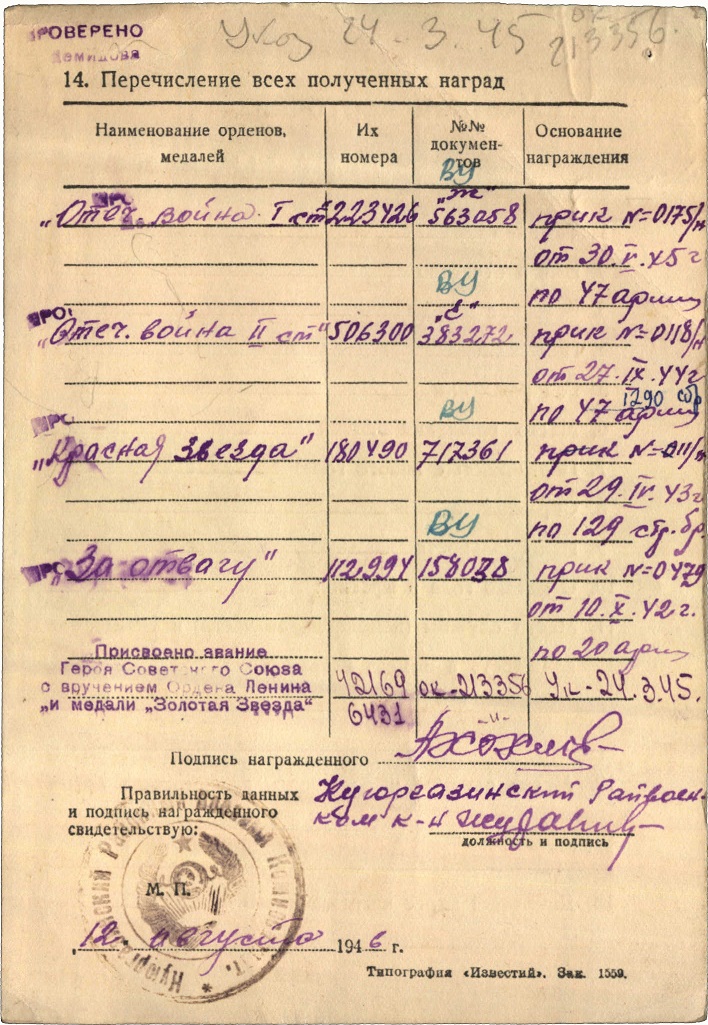 ПРОВЕРЕНО
Демидова
Указ 24-3.45 ок
213356.
14. Перечисление всех полученных наград
Наименование орденов, медалей
Их номера
№№ документов
Основание награждения
ВУ
„Ж"
„Отеч. война I ст" 223426 563058 прик №=0175/н
от 30.V.45г
ВУ по 47 армии
ПРО „С"
„Отеч. война II ст" 506300 383272 прик №=0118/н
от 27.IX.44г
1290
ВУ по 47 армии
ПРО
„Красная звезда" 180490 717361 прик №=011/н
от 29.IV.43г
ВУ по 129 стр. бр.
ПРО „За отвагу" 112994 158038 прик №=0479
от 10.X.42г.
по 20 армии
Присвоено звание
Героя Советского Союза
с вручением Ордена Ленина 42169 ок-213356 Ук-24.3.45.
„и медали „Золотая Звезда" 6431 -"-
Подпись награжденного
Правильность данных Куюргазинский Райвоен-
и подпись награжденного ком к-н
свидетельствую:
должность и подпись
М. П.
12. августа 1946 г.
Типография «Известий». Зак. 1559.